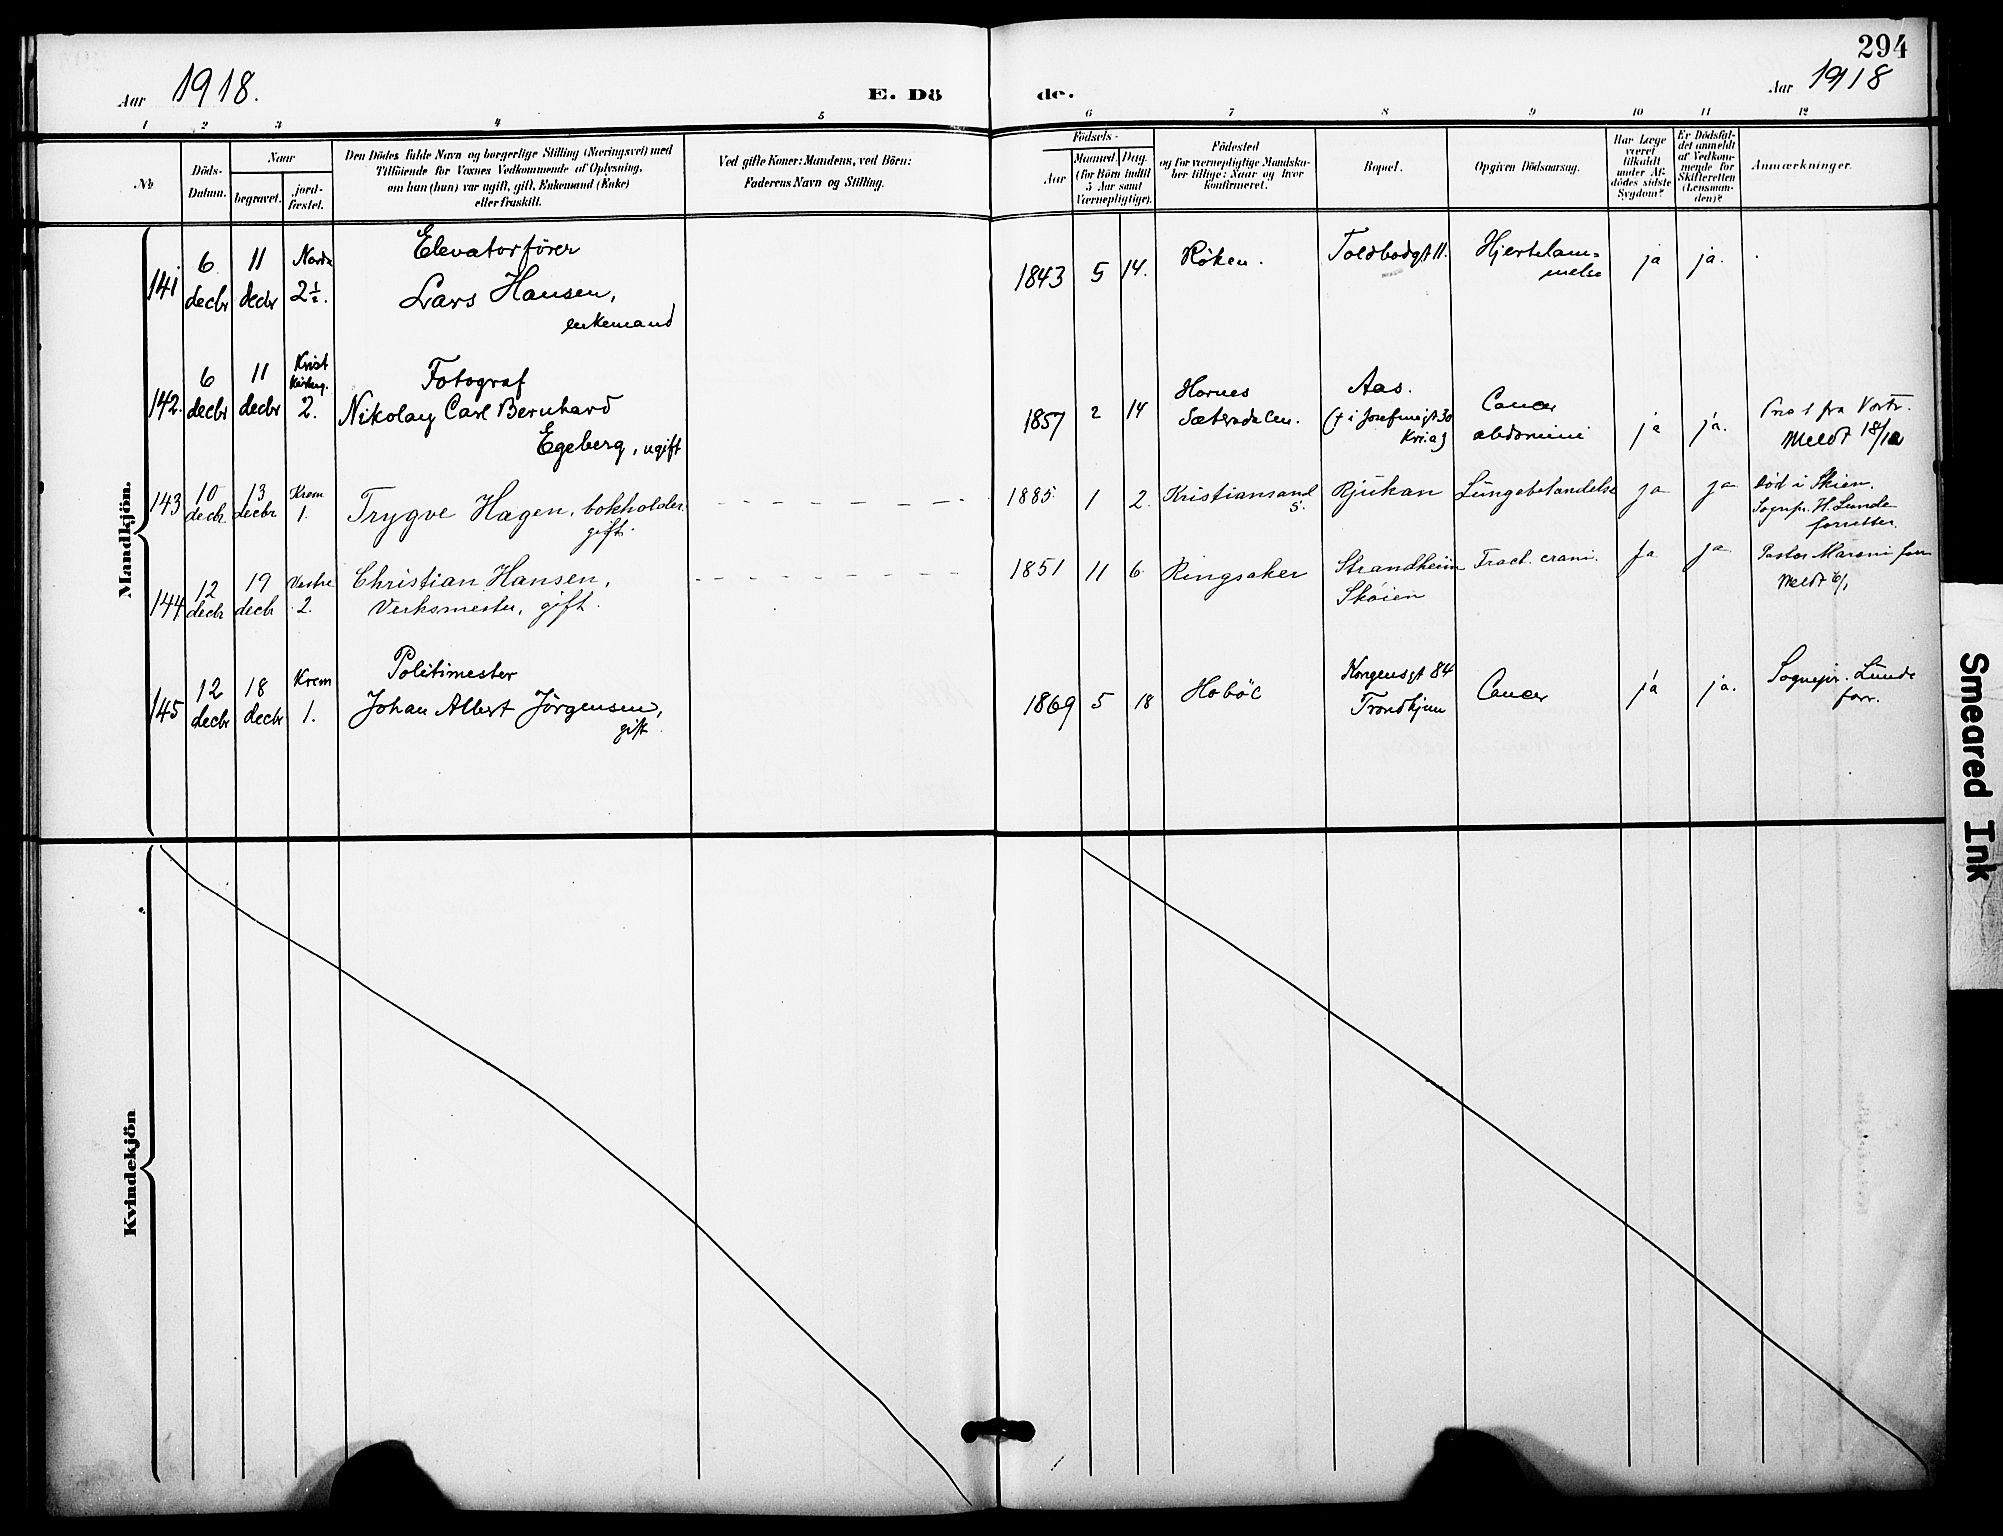 294
Aar 1918.
E. Dö
de.
Aar 1918
1 2 3 4 5
6 7 8 9 10 11 12
No
Döds-
Datum.
Naar
begravet.
jord-
fæstet.
Den Dödes fulde Navn og borgerlige Stilling (Næringsvei) med
Tilföiende for Voxnes Vedkommende af Oplysning,
om han (hun) var ugift, gift, Enkemand (Enke)
eller fraskilt.
Ved gifte Koner: Mandens, ved Börn:
Faderens Navn og Stilling.
Födsels-
Aar
Maaned. Dag.
(for Börn indtil
5 Aar samt
Værnepligtige).
Födested
og for værnepligtige Mandska-
ber tillige: Naar og hvor
konfirmeret.
Bopæl.
Opgiven Dödsaarsag.
Har Læge
været
tilkaldt
under Af-
dödes sidste
Sygdom?
Er Dödsfal-
det anmeldt
af Vedkom-
mende for
Skifteretten
(Lensman-
den)?
Anmærkninger.
Mandkjön.
141
6
decbr
11
decbr
2½.
Elevatorfører
Lars Hansen,
enkemand
1843 5 14.
Røken.
Toldbodgt 11.
Hjertelam=
melse
ja ja.
142.
6
decbr
11
decbr
Krist
2.
Fotograf
Nikolay Carl Bernhard
Egeberg, ugift
1857 2 14
Hornes
Sætersdalen.
Aas.
(† i Josefinesgt 30
Kria)
Cancer
abdomini
ja ja.
fra Vestr.
Meldt 18/12
143
10
decbr.
13
decbr
Krem
1.
Trygve Hagen, bokholder,
gift.
1885. 1 2.
Kristiansand
S.
Rjukan
Lungebetændelse
ja ja
Død i Skien.
Sognepr. H. Lunde
forretter.
144
12
decbr
19
decbr
Vestre
2.
Christian Hansen,
Verksmester, gift.
1851 11 6.
Ringsaker
Strandheim
Skøien
Fract. crani.
Ja ja.
Pastor Maroni forr
Meldt
145
12
decbr
18
decbr
Krem
1.
Politimester
Johan Albert Jørgensen,
gift.
1869 5 18
Hobøl
Kongensgt 84
Trondhjem
Cancer
ja ja.
Sognepr. Lunde
forr.
Kvindekjön
Smeared Ink